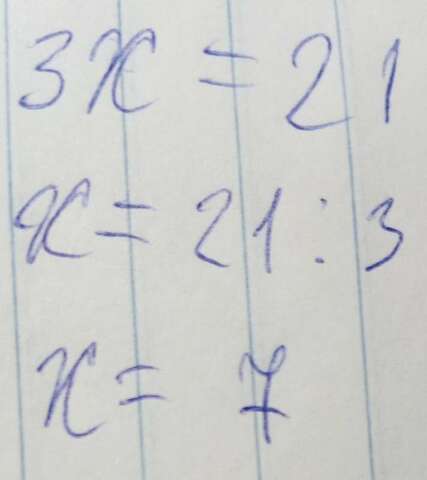 3x = 21
x = 21 : 3
x = 7